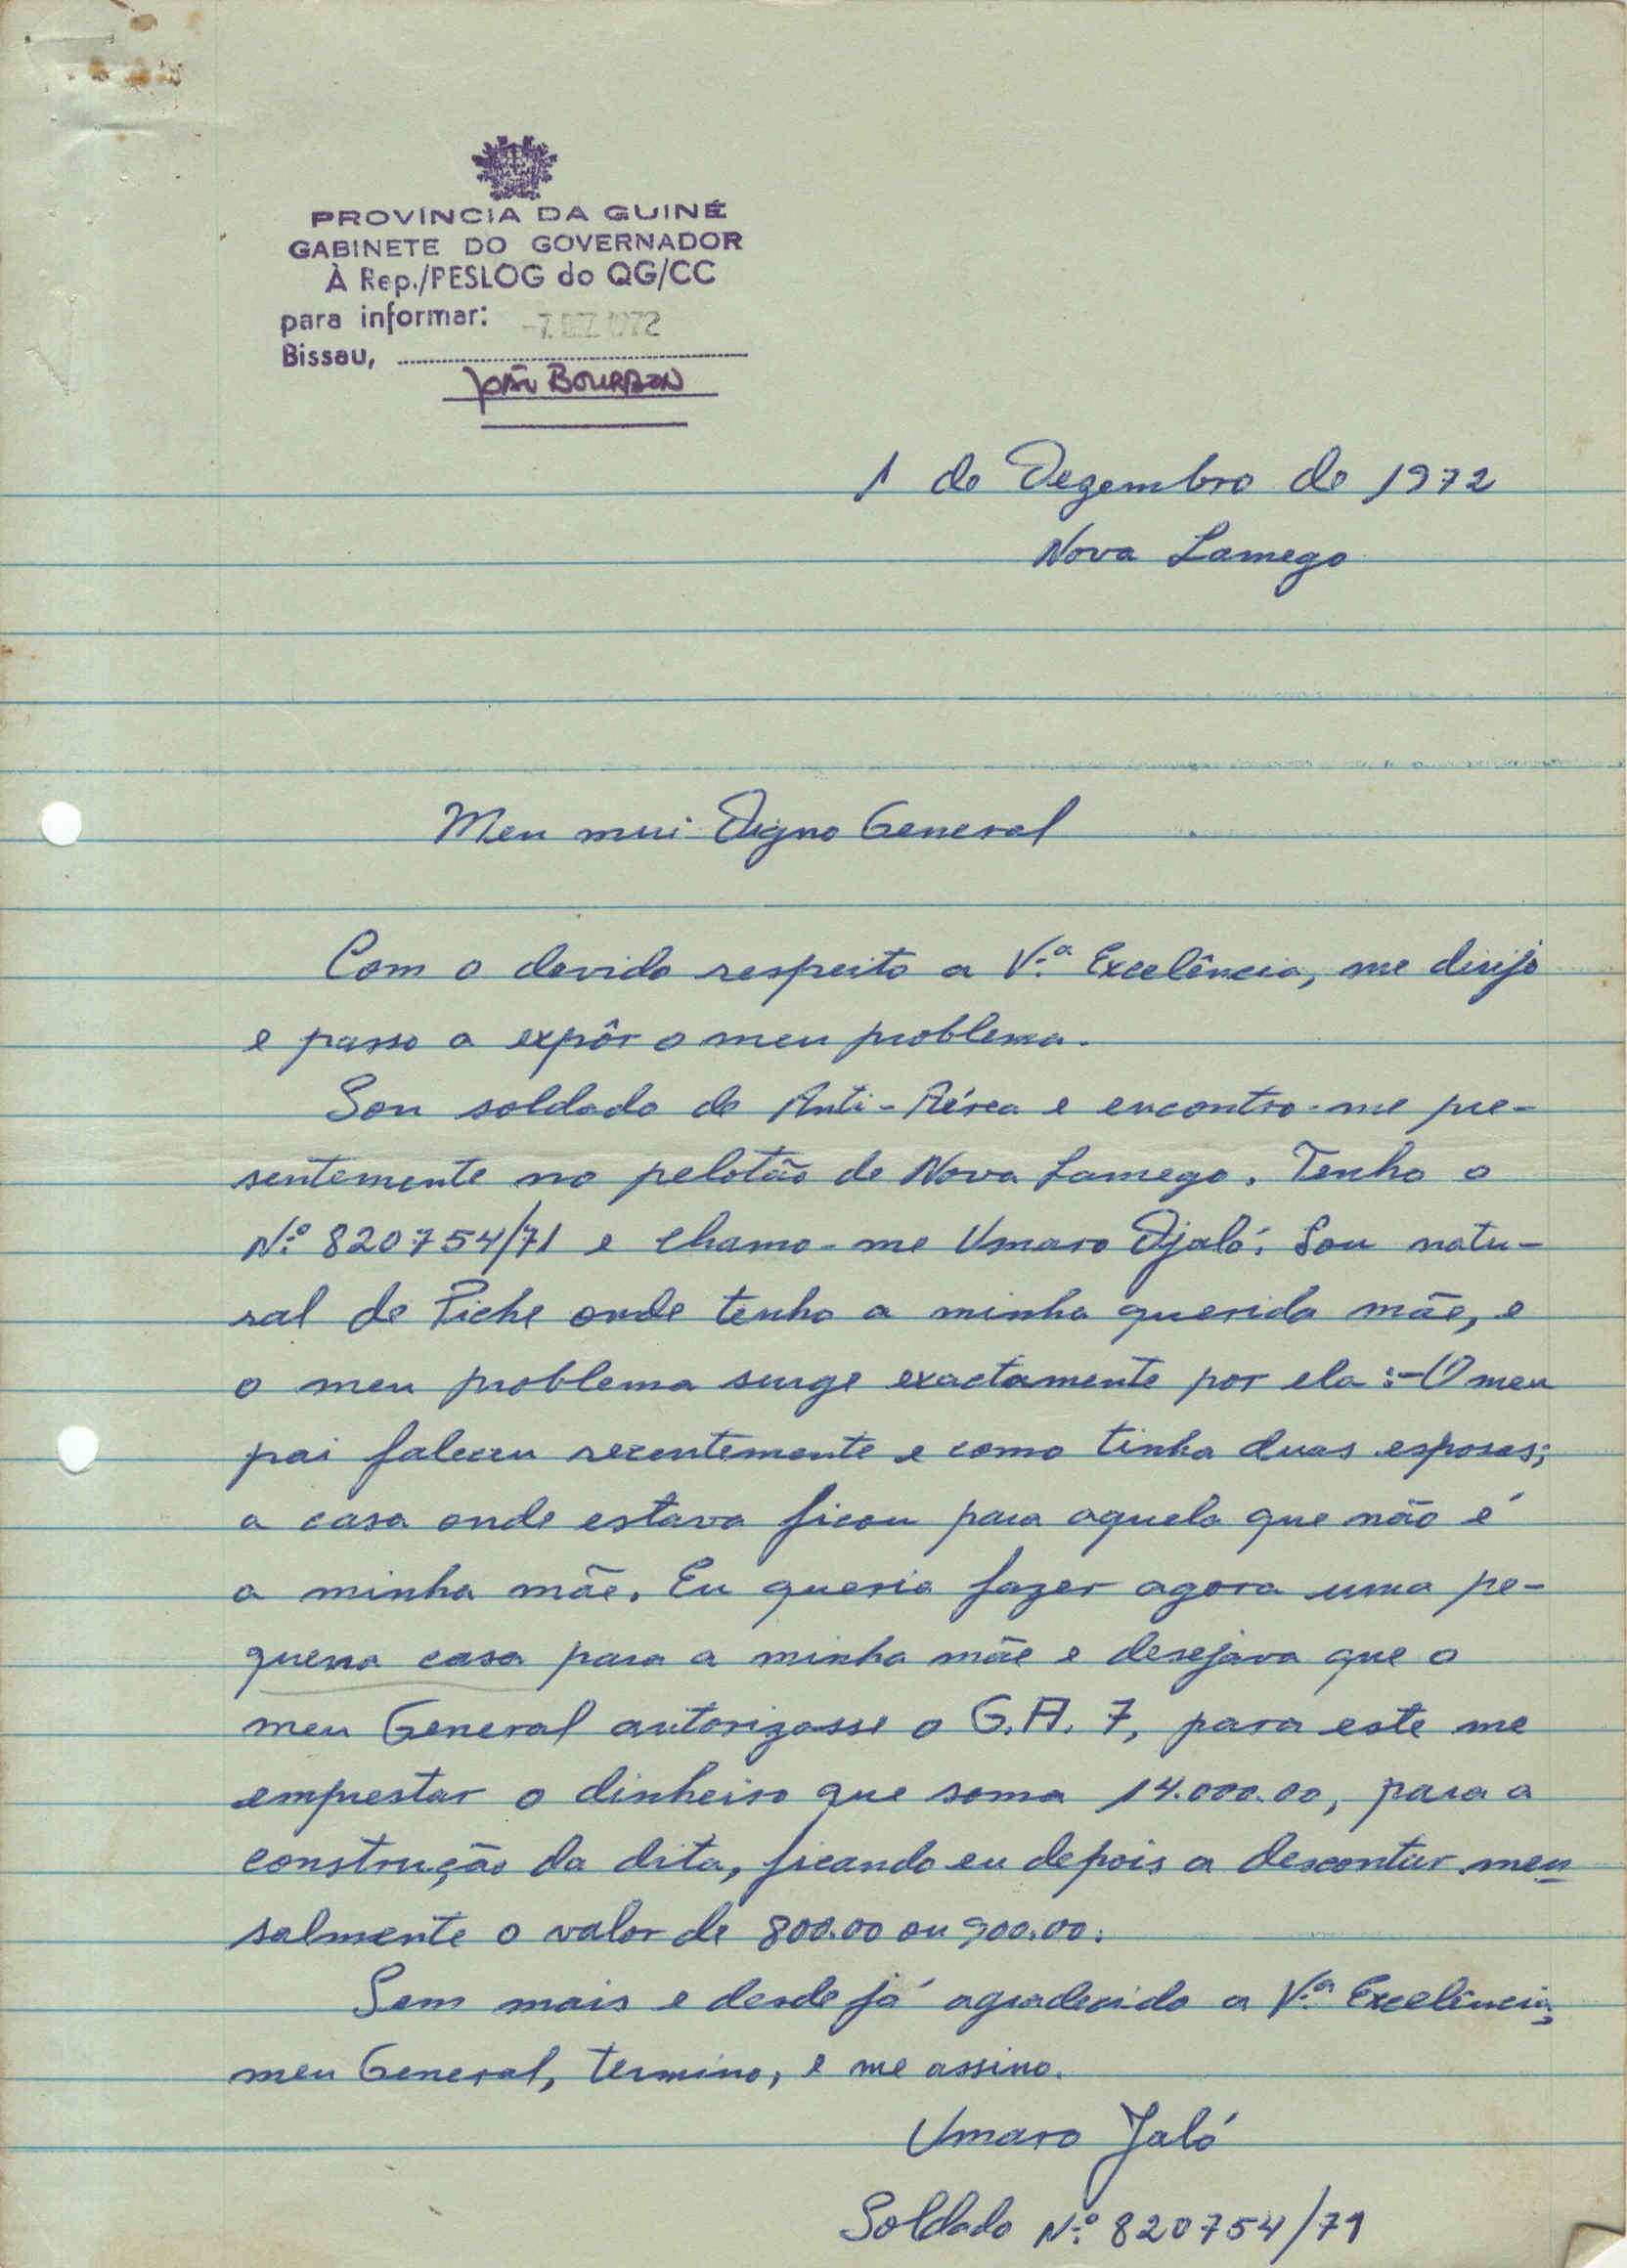 PROVÍNCIA DA GUINÉ
GABINETE DO GOVERNADOR
À Rep./PESLOG do QG/CC
para informar:
-7 DEZ 1972
Bissau,
João Bourbon
1 de Dezembro de 1972
Nova Lamego
Meu mui Digno General
Com o devido respeito a V.ª Excelência, me dirijo
e passo a expôr o meu problema.
Sou soldado de Anti-Aérea e encontro-me pre-
sentemente no pelotão de Nova Lamego. Tenho o
N.º 820754/71 e chamo-me Umaro Djaló. Sou natu-
ral de Piche onde tenho a minha querida mãe, e
o meu problema surge exactamente por ela :- O meu
pai faleceu recentemente e como tinha duas esposas;
a casa onde estava ficou para aquela que não é
a minha mãe. Eu queria fazer agora uma pe-
quena casa para a minha mãe e desejava que o
meu General autorizasse o G.A. 7, para este me
emprestar o dinheiro que soma 14.000.00, para a
construção da dita, ficando eu depois a descontar men
salmente o valor de 800.00 ou 900.00.
Sem mais e desde já agradecido a V.ª Excelência,
meu General, termino, e me assino.
Umaro Jaló
Soldado N.º 820754/71